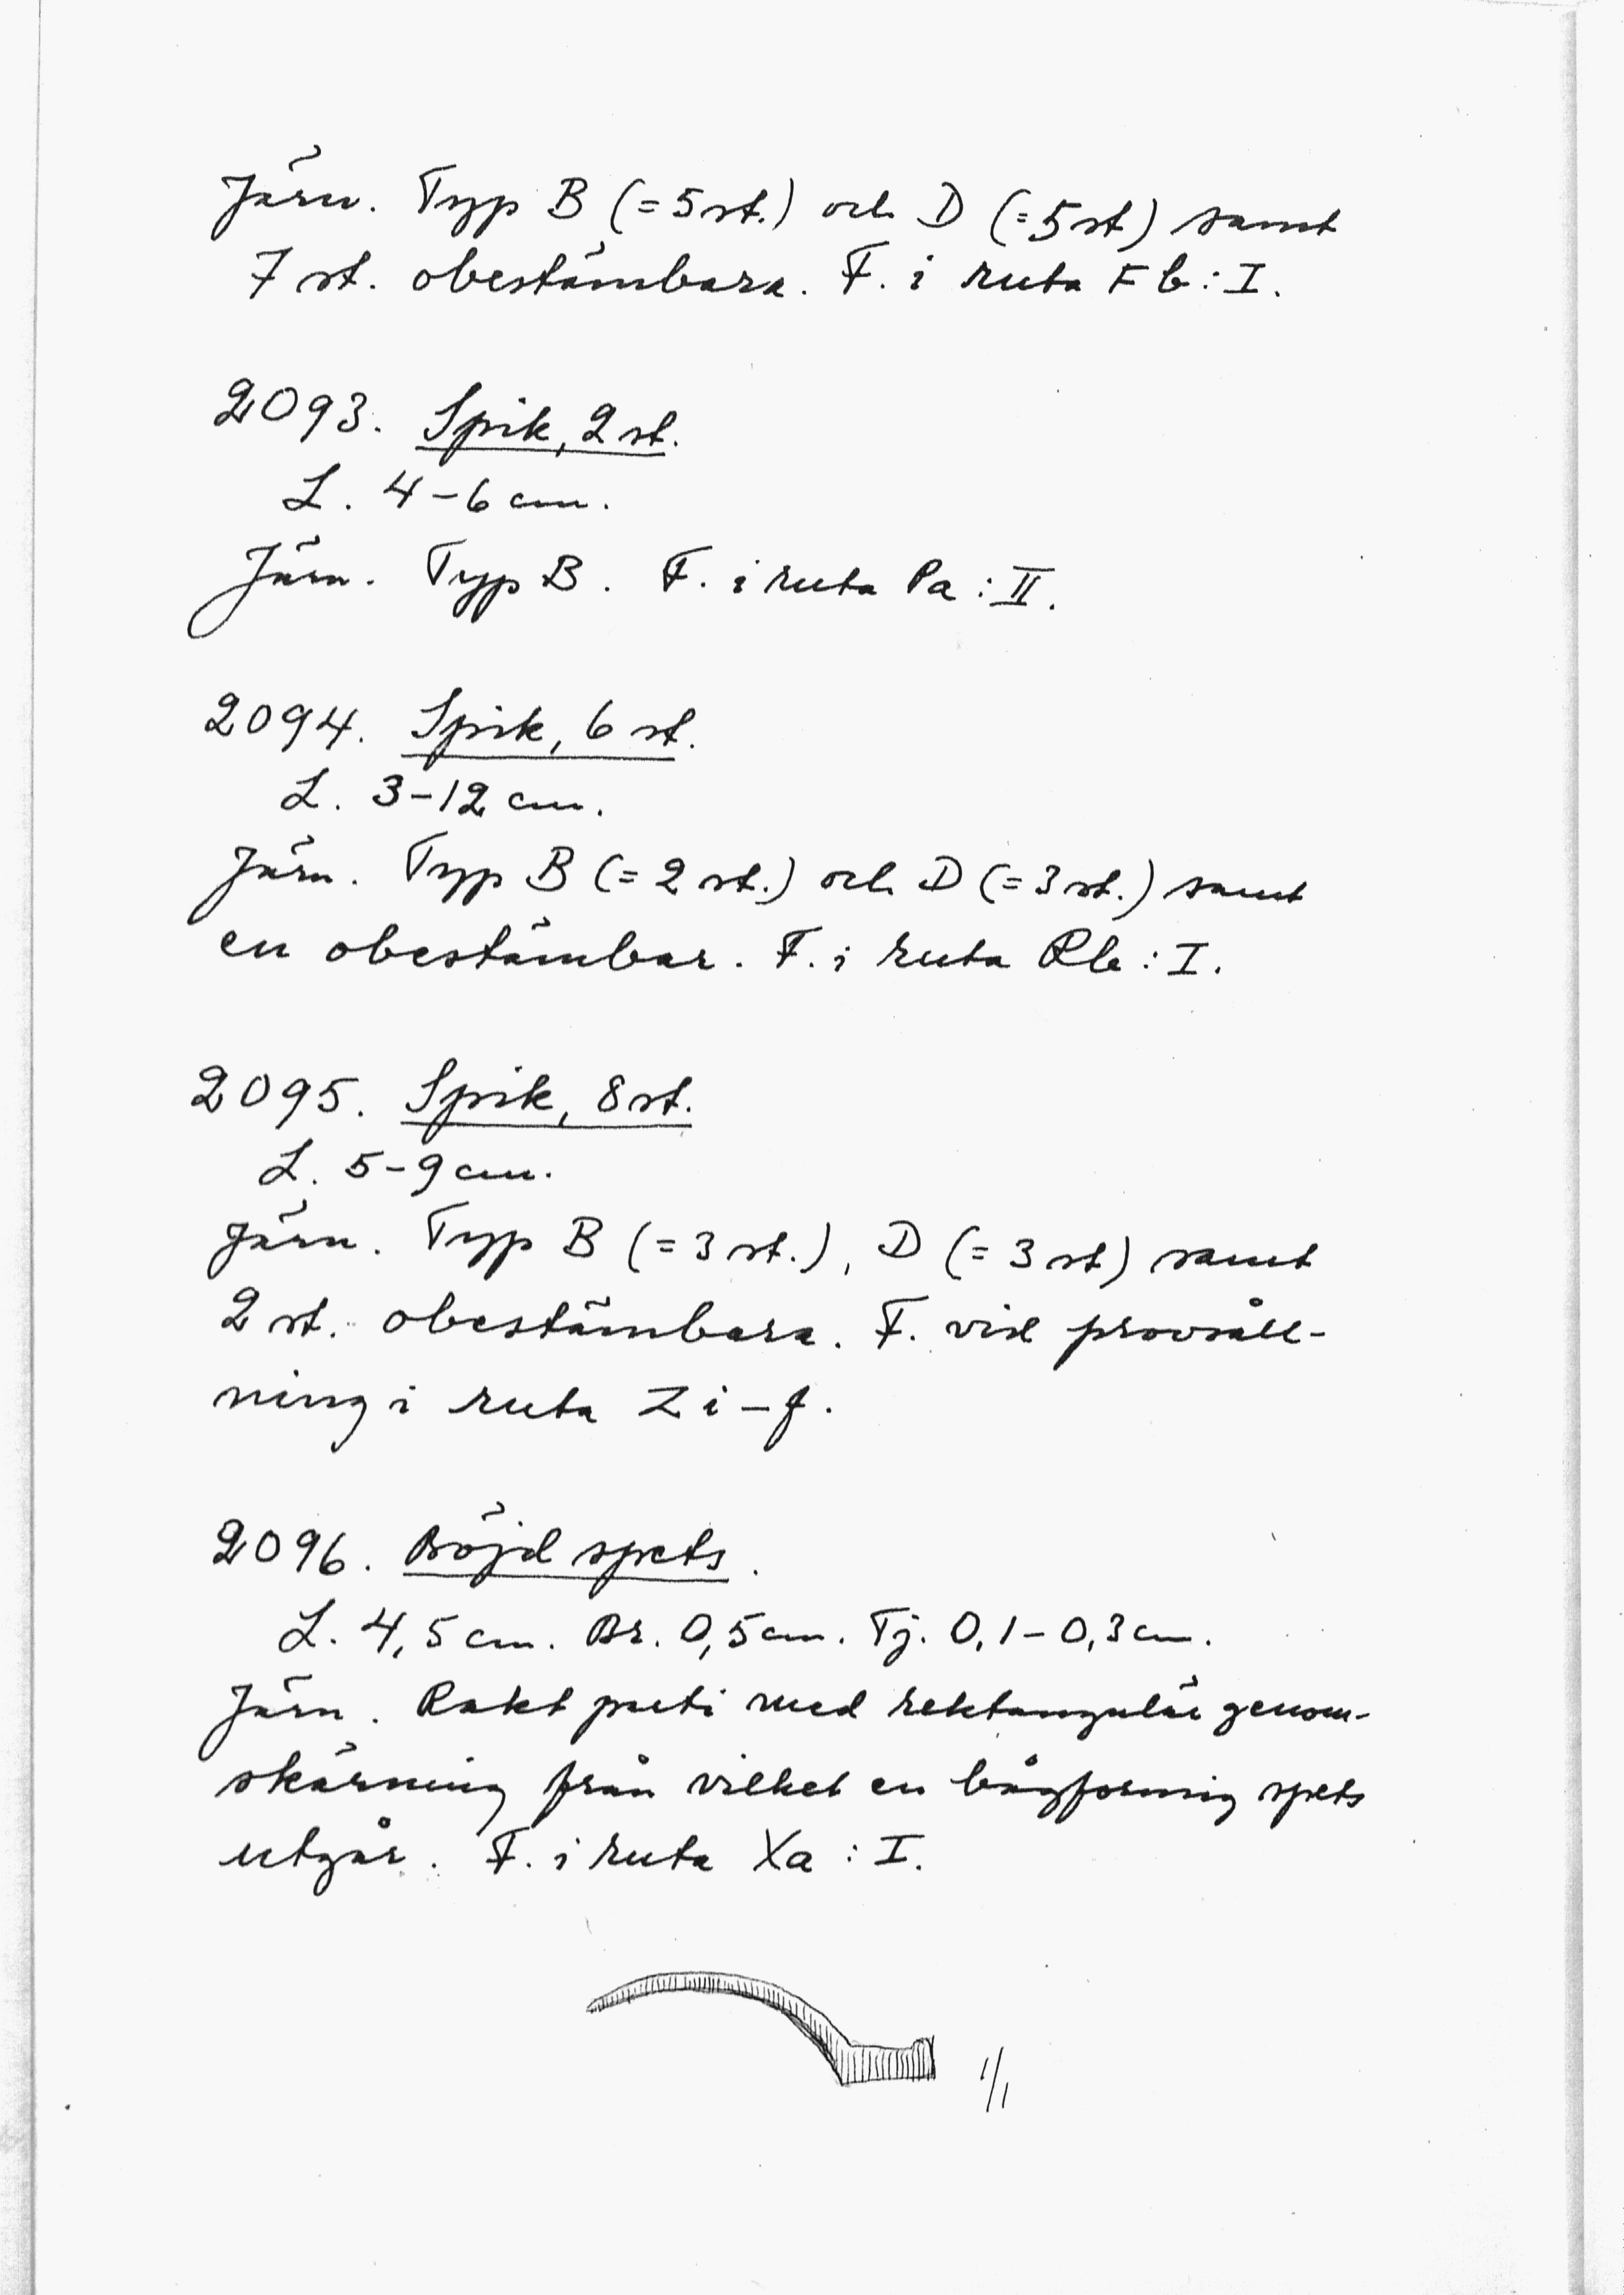 Järn. Typ B (=5 st.) och D (=5 st) samt
7 st. obestämbara. F. i ruta Fb:I.
2093. Spik, 2 st.
L. 4-6 cm.
Järn. Typ B. F. i ruta Pa:II.
2094. Spik, 6 st.
L. 3-12 cm.
Järn. Typ B (=2 st.) och D (=3 st.) samt
en obestämbar. F. i ruta Rb:I.
2095. Spik, 8 st.
L. 5-9 cm.
Järn. Typ B (=3 st.), D (=3 st) samt
2 st. obestämbara. F. vid provsåll-
ning i ruta Z i-j.
2096. Böjd spets.
L. 4,5 cm. Br. 0,5 cm. Tj. 0,1-0,3 cm.
Järn. Rakt parti med rektangulär genom-
skärning från vilket en bågformig spets
utgår. F. i ruta Xa:I.
1/1